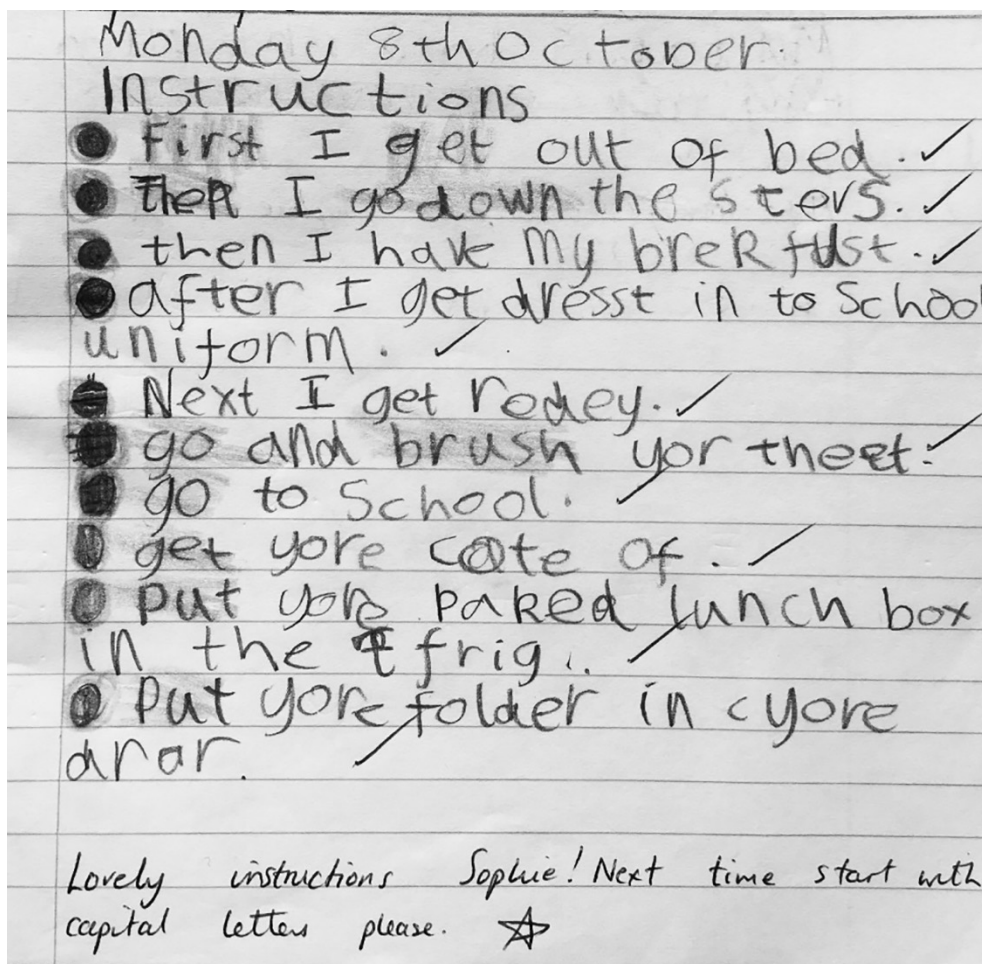 Monday 8th October.
Instructions
● First I get out of bed. ✓
● Then I go down the sters. ✓
● then I have my brekfust. ✓
● after I get dresst in to School
uniform. ✓
● Next I get rodey. ✓
● go and brush yor theet. ✓
● go to School. ✓
● get yore cate of. ✓
● Put yore paked lunch box
in the frig. ✓
● Put yore folder in yore
drar. ✓
Lovely instructions Sophie! Next time start with
capital letters please. ☆